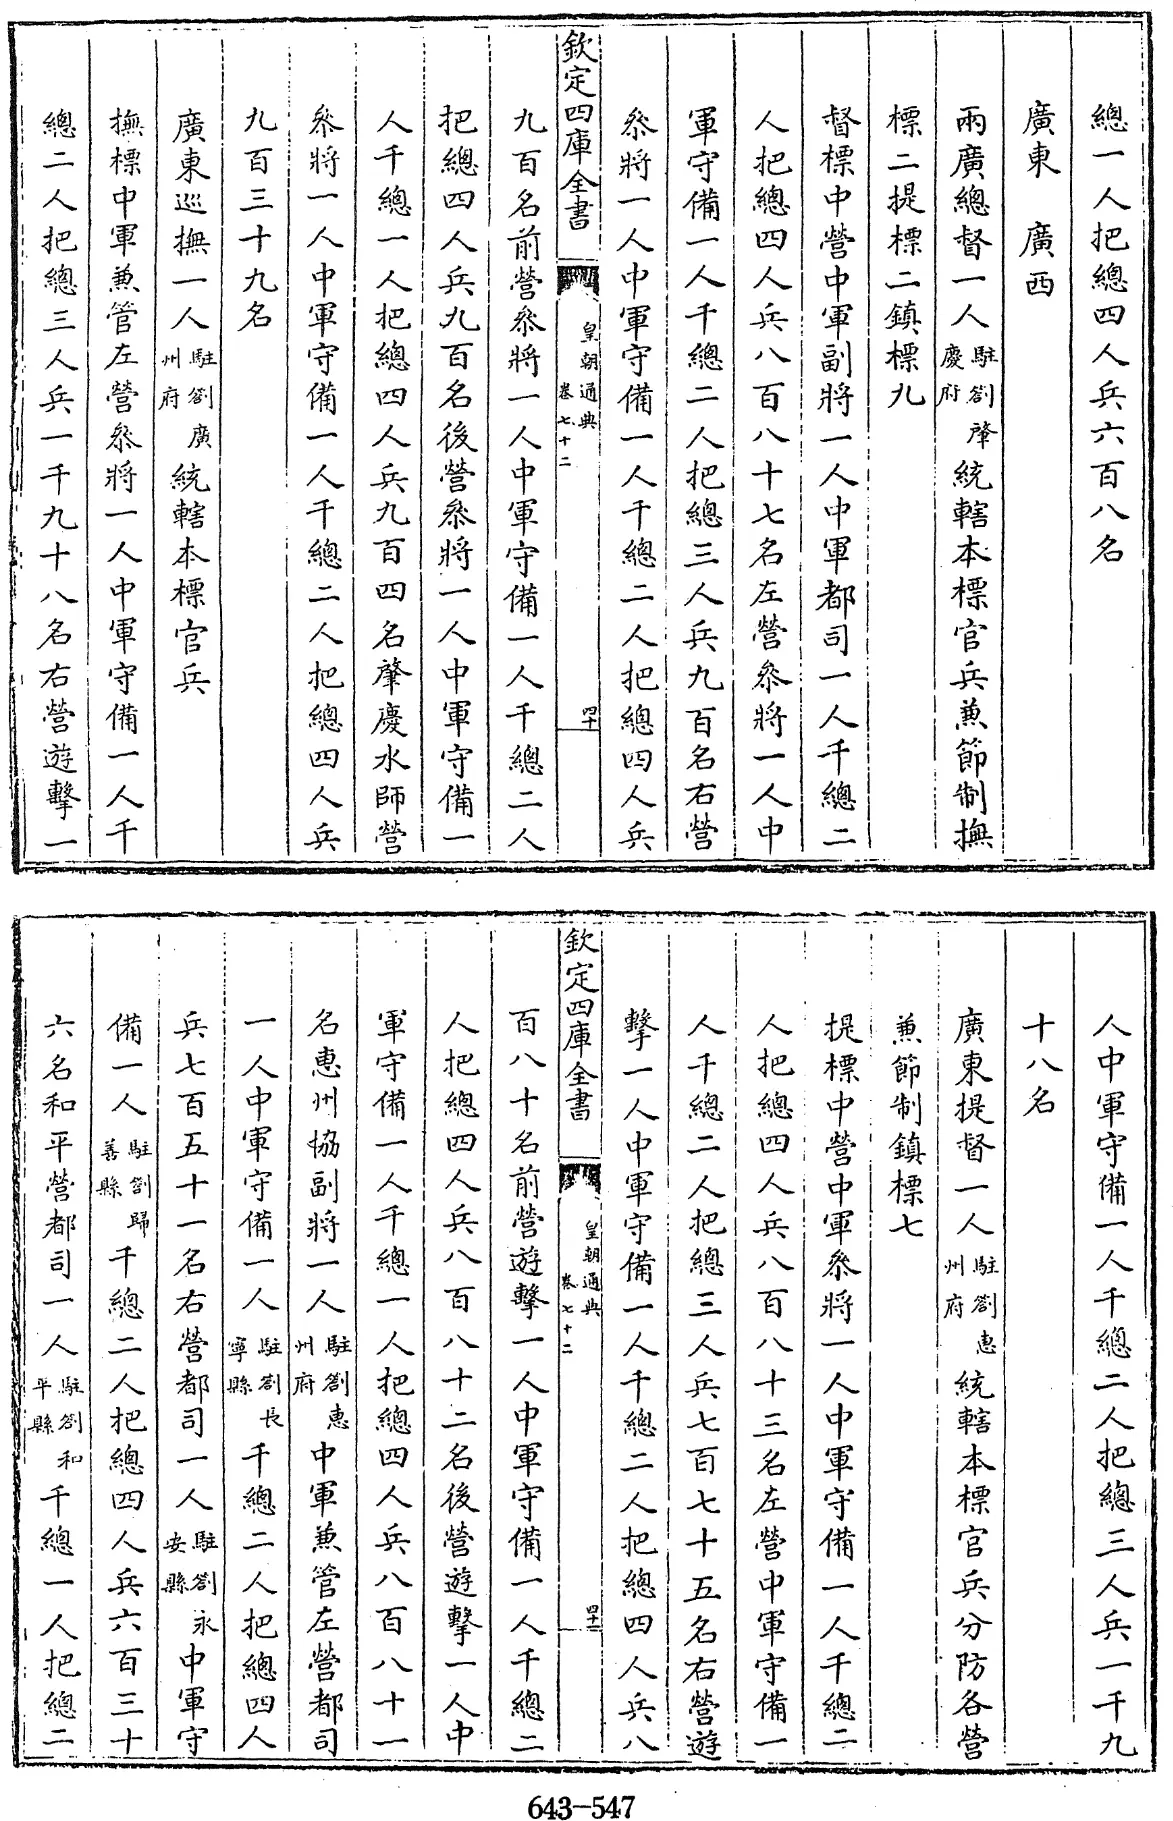 總一人把總四人兵六百八名
廣東　廣西
兩廣總督一人駐劄肇慶府統轄本標官兵兼節制撫
標二提標二鎮標九
督標中營中軍副將一人中軍都司一人千總二
人把總四人兵八百八十七名左營叅將一人中
軍守備一人千總二人把總三人兵九百名右營
叅將一人中軍守備一人千總二人把總四人兵
欽定四庫全書　皇朝通典卷七十二　四十
九百名前營叅將一人中軍守備一人千總二人
把總四人兵九百名後營叅將一人中軍守備一
人千總一人把總四人兵九百四名肇慶水師營
叅將一人中軍守備一人千總二人把總四人兵
九百三十九名
廣東巡撫一人駐劄廣州府統轄本標官兵
撫標中軍兼管左營叅將一人中軍守備一人千
總二人把總三人兵一千九十八名右營遊擊一
人中軍守備一人千總二人把總三人兵一千九
十八名
廣東提督一人駐劄惠州府統轄本標官兵分防各營
兼節制鎮標七
提標中營中軍叅將一人中軍守備一人千總二
人把總四人兵八百八十三名左營中軍守備一
人千總二人把總三人兵七百七十五名右營遊
擊一人中軍守備一人千總二人把總四人兵八
欽定四庫全書　皇朝通典卷七十二　四十一
百八十名前營遊擊一人中軍守備一人千總二
人把總四人兵八百八十二名後營遊擊一人中
軍守備一人千總一人把總四人兵八百八十一
名惠州協副將一人駐劄惠州府中軍兼管左營都司
一人中軍守備一人駐劄長寧縣千總二人把總四人
兵七百五十一名右營都司一人駐劄永安縣中軍守
備一人駐劄歸善縣千總二人把總四人兵六百三十
六名和平營都司一人駐劄和平縣千總一人把總二
643-547